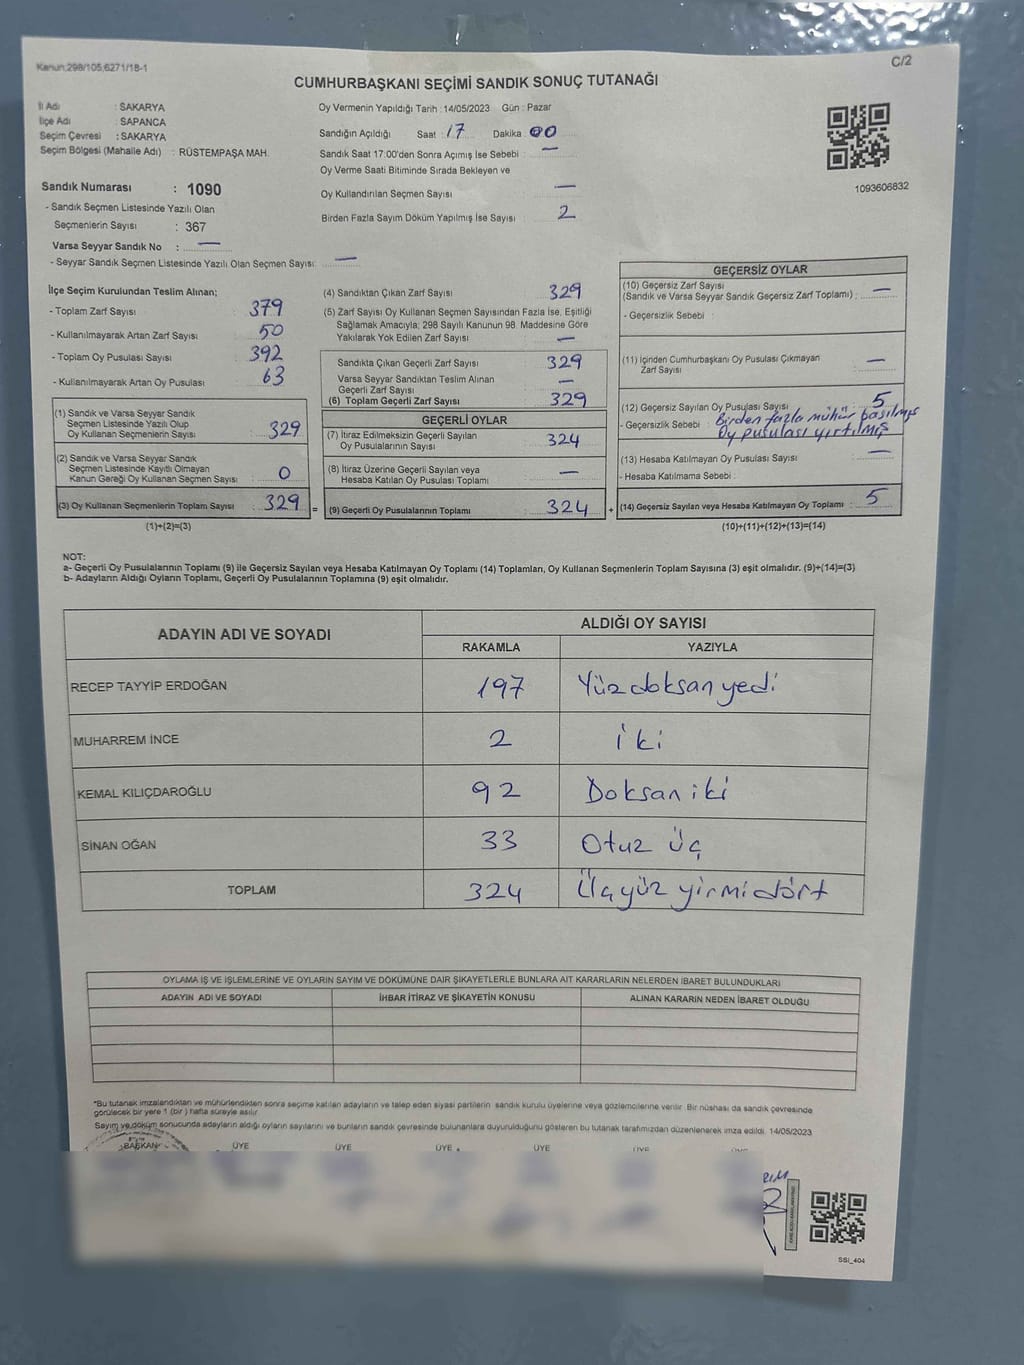 Kanun:298/105,6271/18-1
C/2
CUMHURBAŞKANI SEÇİMİ SANDIK SONUÇ TUTANAĞI
İl Adı : SAKARYA
İlçe Adı : SAPANCA
Seçim Çevresi : SAKARYA
Seçim Bölgesi (Mahalle Adı) : RÜSTEMPAŞA MAH.
Sandık Numarası : 1090
- Sandık Seçmen Listesinde Yazılı Olan
Seçmenlerin Sayısı : 367
Varsa Seyyar Sandık No : —
- Seyyar Sandık Seçmen Listesinde Yazılı Olan Seçmen Sayısı: —
Oy Vermenin Yapıldığı Tarih : 14/05/2023 Gün : Pazar
Sandığın Açıldığı Saat : 17 Dakika 00
Sandık Saat 17:00'den Sonra Açılmış İse Sebebi : —
Oy Verme Saati Bitiminde Sırada Bekleyen ve
Oy Kullandırılan Seçmen Sayısı —
Birden Fazla Sayım Döküm Yapılmış İse Sayısı : 2
1093606832
İlçe Seçim Kurulundan Teslim Alınan;
- Toplam Zarf Sayısı 379
- Kullanılmayarak Artan Zarf Sayısı 50
- Toplam Oy Pusulası Sayısı 392
- Kullanılmayarak Artan Oy Pusulası 63
(1) Sandık ve Varsa Seyyar Sandık
Seçmen Listesinde Yazılı Olup
Oy Kullanan Seçmenlerin Sayısı : 329
(2) Sandık ve Varsa Seyyar Sandık
Seçmen Listesinde Kayıtlı Olmayan
Kanun Gereği Oy Kullanan Seçmen Sayısı : 0
(3) Oy Kullanan Seçmenlerin Toplam Sayısı : 329
(1)+(2)=(3)
(4) Sandıktan Çıkan Zarf Sayısı 329
(5) Zarf Sayısı Oy Kullanan Seçmen Sayısından Fazla İse, Eşitliği
Sağlamak Amacıyla; 298 Sayılı Kanunun 98. Maddesine Göre
Yakılarak Yok Edilen Zarf Sayısı —
Sandıkta Çıkan Geçerli Zarf Sayısı 329
Varsa Seyyar Sandıktan Teslim Alınan
Geçerli Zarf Sayısı —
(6) Toplam Geçerli Zarf Sayısı 329
GEÇERLİ OYLAR
(7) İtiraz Edilmeksizin Geçerli Sayılan
Oy Pusulalarının Sayısı 324
(8) İtiraz Üzerine Geçerli Sayılan veya
Hesaba Katılan Oy Pusulası Toplamı —
= (9) Geçerli Oy Pusulalarının Toplamı 324 +
GEÇERSİZ OYLAR
(10) Geçersiz Zarf Sayısı
(Sandık ve Varsa Seyyar Sandık Geçersiz Zarf Toplamı) : —
- Geçersizlik Sebebi :
(11) İçinden Cumhurbaşkanı Oy Pusulası Çıkmayan
Zarf Sayısı —
(12) Geçersiz Sayılan Oy Pusulası Sayısı : 5
- Geçersizlik Sebebi : Birden fazla mühür basılmış
Oy pusulası yırtılmış
(13) Hesaba Katılmayan Oy Pusulası Sayısı : —
- Hesaba Katılmama Sebebi :
(14) Geçersiz Sayılan veya Hesaba Katılmayan Oy Toplamı : 5
(10)+(11)+(12)+(13)=(14)
NOT:
a- Geçerli Oy Pusulalarının Toplamı (9) ile Geçersiz Sayılan veya Hesaba Katılmayan Oy Toplamı (14) Toplamları, Oy Kullanan Seçmenlerin Toplam Sayısına (3) eşit olmalıdır. (9)+(14)=(3)
b- Adayların Aldığı Oyların Toplamı, Geçerli Oy Pusulalarının Toplamına (9) eşit olmalıdır.
ADAYIN ADI VE SOYADI ALDIĞI OY SAYISI
RAKAMLA YAZIYLA
RECEP TAYYİP ERDOĞAN 197 Yüzdoksanyedi
MUHARREM İNCE 2 iki
KEMAL KILIÇDAROĞLU 92 Doksan iki
SİNAN OĞAN 33 Otuz üç
TOPLAM 324 Üçyüz yirmidört
OYLAMA İŞ VE İŞLEMLERİNE VE OYLARIN SAYIM VE DÖKÜMÜNE DAİR ŞİKAYETLERLE BUNLARA AİT KARARLARIN NELERDEN İBARET BULUNDUKLARI
ADAYIN ADI VE SOYADI İHBAR İTİRAZ VE ŞİKAYETİN KONUSU ALINAN KARARIN NEDEN İBARET OLDUĞU
*Bu tutanak imzalandıktan ve mühürlendikten sonra seçime katılan adayların ve talep eden siyasi partilerin sandık kurulu üyelerine veya gözlemcilerine verilir. Bir nüshası da sandık çevresinde
görülecek bir yere 1 (bir) hafta süreyle asılır.
Sayım ve döküm sonucunda adayların aldığı oyların sayılarını ve bunların sandık çevresinde bulunanlara duyurulduğunu gösteren bu tutanak tarafımızdan düzenlenerek imza edildi. 14/05/2023
BAŞKAN ÜYE ÜYE ÜYE ÜYE ÜYE ÜYE
SSİ_404